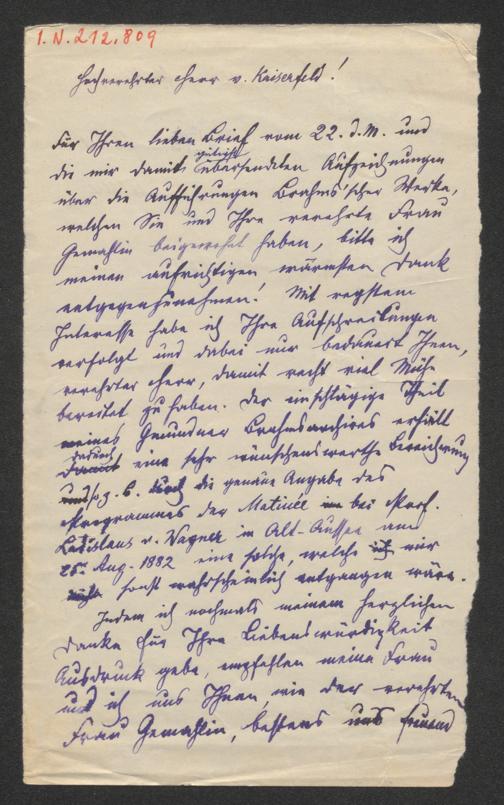 I. N. 212.809
Hochverehrter Herr v. Kaiserfeld!
Für Ihren lieben Brief vom 22. d. M. und
die mir damit gütigst übersendeten Aufzeichnungen
über die Aufführungen Brahms'scher Werke,
welchen Sie und Ihre verehrte Frau
Gemahlin beigewohnt haben, bitte ich
meinen aufrichtigen wärmsten Dank
entgegenzunehmen! Mit regstem
Interesse habe ich Ihre Aufschreibungen
verfolgt und dabei nur bedauert Ihnen,
verehrter Herr, damit recht viel Mühe
bereitet zu haben. Der einschlägige Theil
meines Gmundner Brahmsarchives erhält
dadurch eine sehr wünschenswerthe Bereicherung
und so z. B. durch die genaue Angabe des
Programmes der Matinée in bei Prof.
Ladislaus v. Wagner in Alt-Aussee am
25. Aug. 1882 eine solche, welche ich mir
nicht sonst wahrscheinlich entgangen wäre.
Indem ich nochmals meinem herzlichen
Danke für Ihre Liebenswürdigkeit
Ausdruck gebe, empfehlen meine Frau
und ich uns Ihnen, wie der verehrten
Frau Gemahlin, bestens und